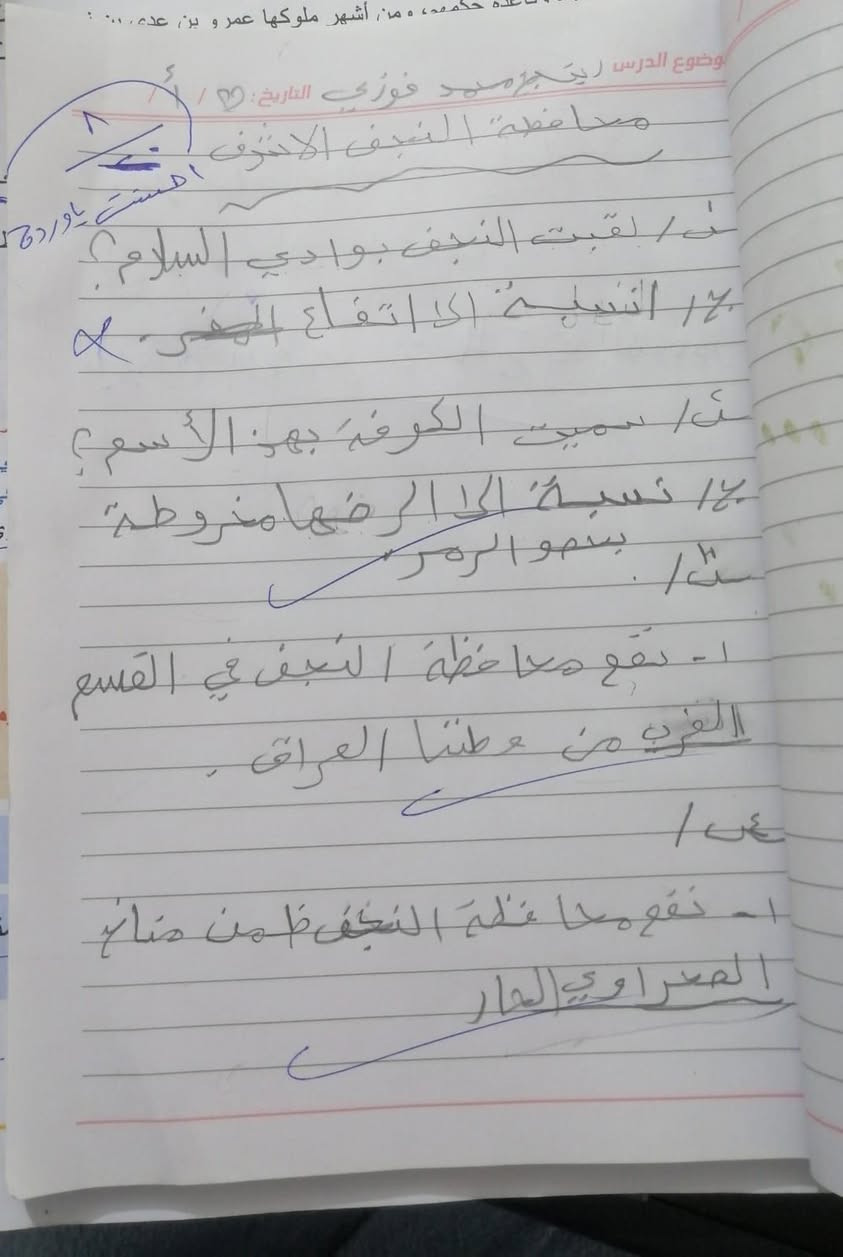 ومن أشهر ملوكها عمرو بن عدي
موضوع الدرس محمد فوزي التاريخ: / / أ
محافظة النجف الاشرف
٨
احسنت ياوردة
س١/ لقبت النجف بوادي السلام؟
ج/ انسبة الى اتفاع
س٢/ سميت الكوفة بهذ الأسم؟
ج/ نسبة الى الرضها مخروطة
بنحو الرمر
س٣/
١- تقع محافظة النجف في القسم
الغرب من وطننا العراق .
س٤/
١- تقع محافظة النجف ظمن مناخ
الصحراوي الحار